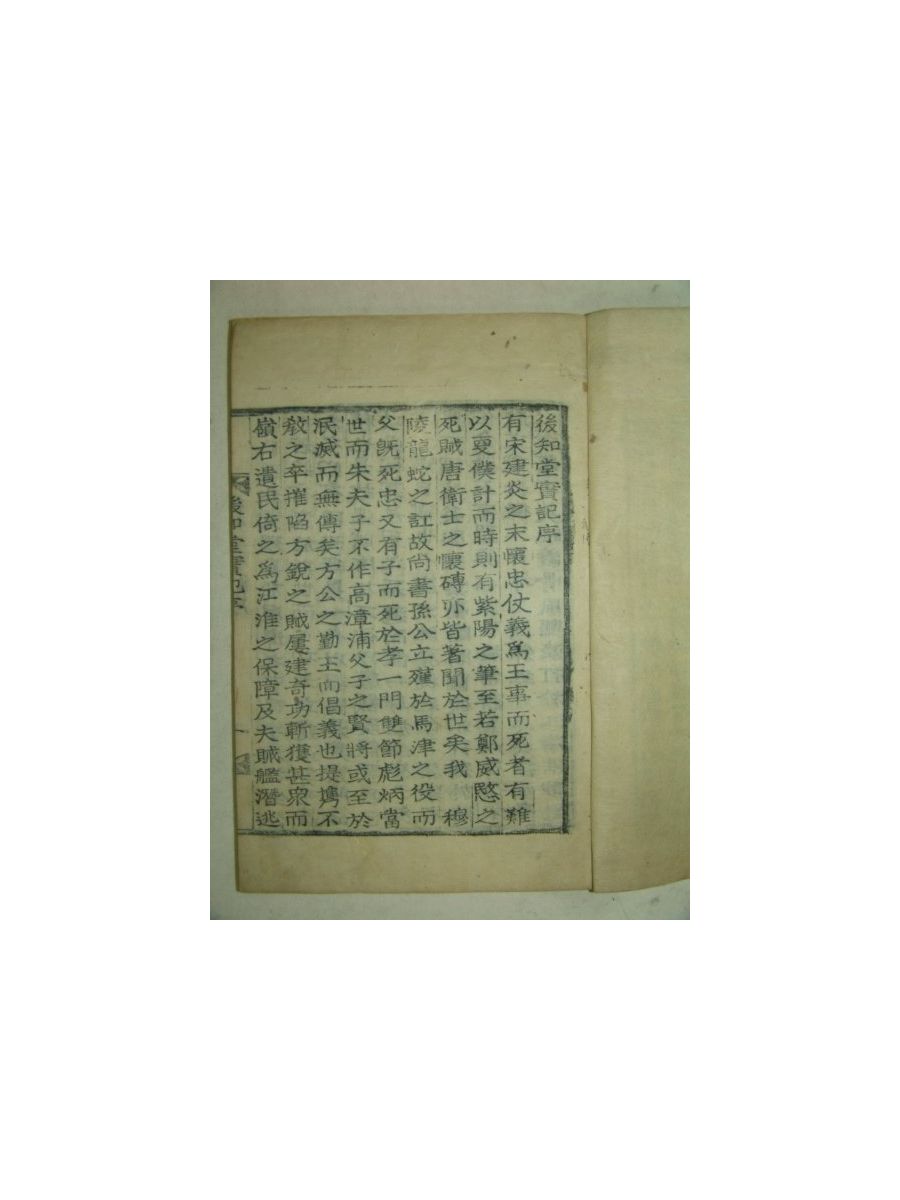 後知堂實記序
有宋建炎之末懷忠仗義爲王事而死者有難
以更僕計而時則有紫陽之筆至若鄭威愍之
死賊唐衛士之懷磚亦皆著聞於世矣我　穆
陵龍蛇之訌故尚書孫公立殣於馬津之役而
父旣死忠又有子而死於孝一門雙節彪炳當
世而朱夫子不作高漳浦父子之賢將或至於
泯滅而無傳矣方公之勤王而倡義也提携不
敎之卒摧陷方銳之賊屢建奇功斬獲甚衆而
嶺右遺民倚之爲江淮之保障及夫賊艦潛逃
後知堂實記序 一